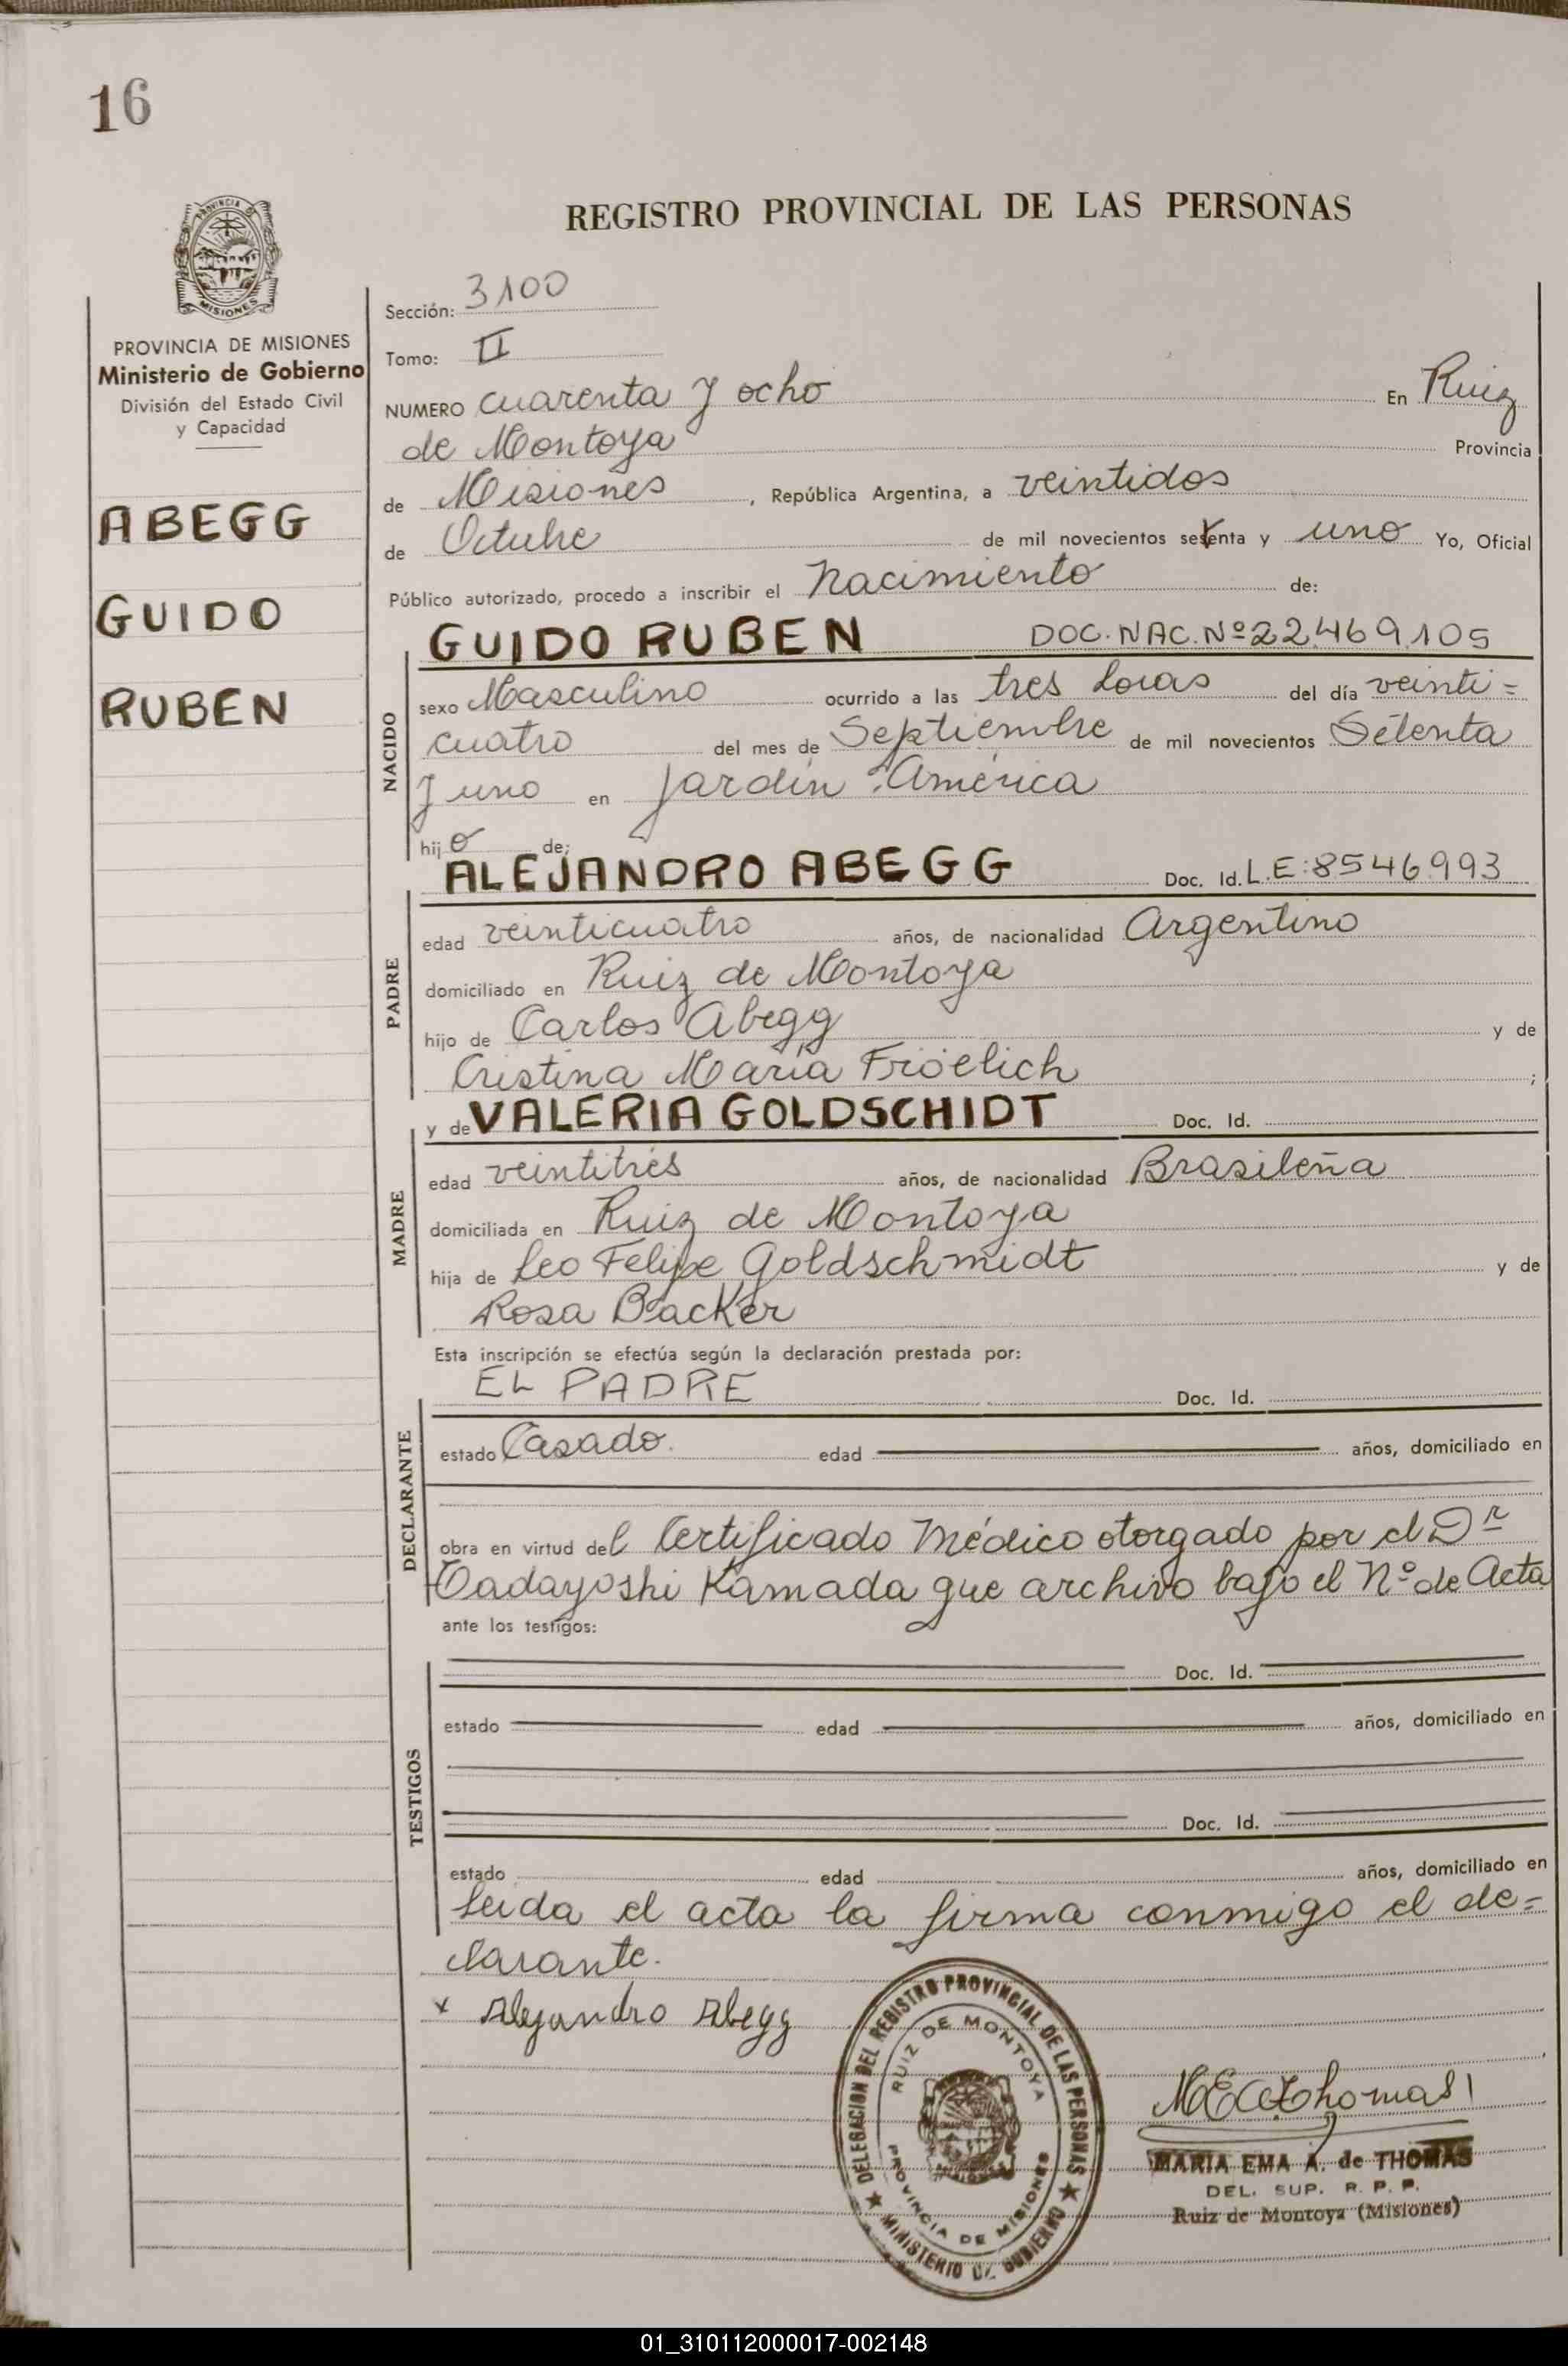 16
REGISTRO PROVINCIAL DE LAS PERSONAS
PROVINCIA DE MISIONES
Ministerio de Gobierno
División del Estado Civil
y Capacidad
ABEGG
GUIDO
RUBEN
Sección: 3100
Tomo: II
NUMERO cuarenta y ocho En Ruiz
de Montoya Provincia
de Misiones, República Argentina, a veintidos
de Octubre de mil novecientos setenta y uno Yo, Oficial
Público autorizado, procedo a inscribir el Nacimiento de:
NACIDO
GUIDO RUBEN DOC. NAC. Nº 22.469.105
sexo Masculino ocurrido a las tres horas del día veinti=
cuatro del mes de Septiembre de mil novecientos Setenta
y uno en Jardín América
hijo de;
PADRE
ALEJANDRO ABEGG Doc. Id. L.E: 8546993
edad veinticuatro años, de nacionalidad Argentino
domiciliado en Ruiz de Montoya
hijo de Carlos Abegg y de
Cristina María Fröelich;
MADRE
y de VALERIA GOLDSCHIDT Doc. Id.
edad veintitrés años, de nacionalidad Brasileña
domiciliada en Ruiz de Montoya
hija de Leo Felipe Goldschmidt y de
Rosa Backer
Esta inscripción se efectúa según la declaración prestada por:
DECLARANTE
EL PADRE Doc. Id.
estado Casado. edad años, domiciliado en
obra en virtud del Certificado Médico otorgado por el Dr
Tadayoshi Kamada que archivo bajo el Nº de Acta
ante los testigos:
TESTIGOS
Doc. Id.
estado edad años, domiciliado en
Doc. Id.
estado edad años, domiciliado en
Leida el acta la firma conmigo el de=
clarante.
x Alejandro Abegg
DELEGACION DEL REGISTRO PROVINCIAL DE LAS PERSONAS
RUIZ DE MONTOYA
PROVINCIA DE MISIONES
MINISTERIO DE GOBIERNO
MARIA EMA A. de THOMAS
DEL. SUP. R. P. P.
Ruiz de Montoya (Misiones)
01_310112000017-002148